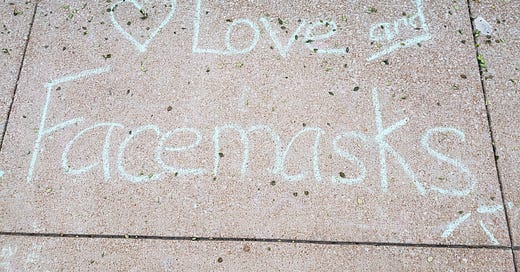 Love and
Facemasks